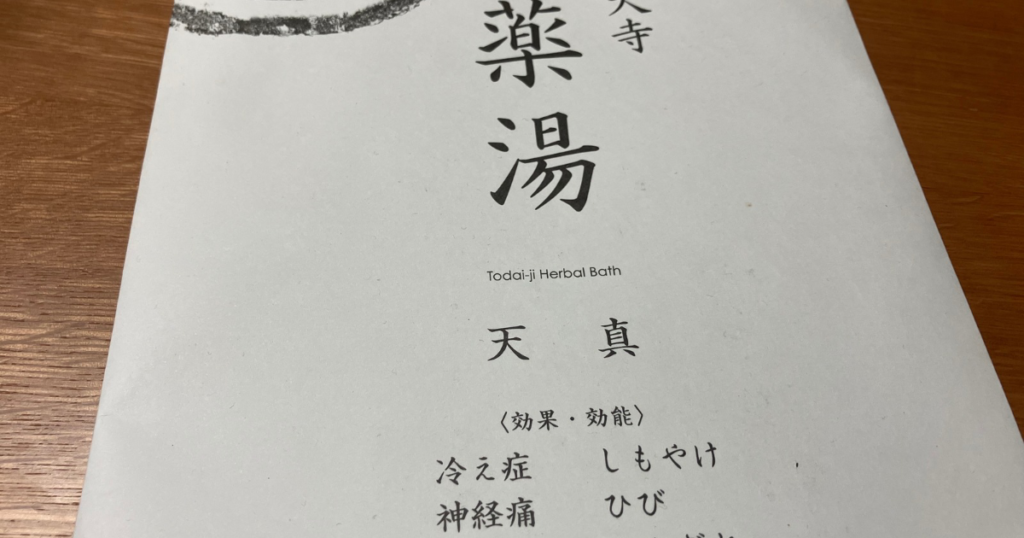 大寺
薬湯
Todai-ji Herbal Bath
天真
〈効果・効能〉
冷え症 しもやけ
神経痛 ひび